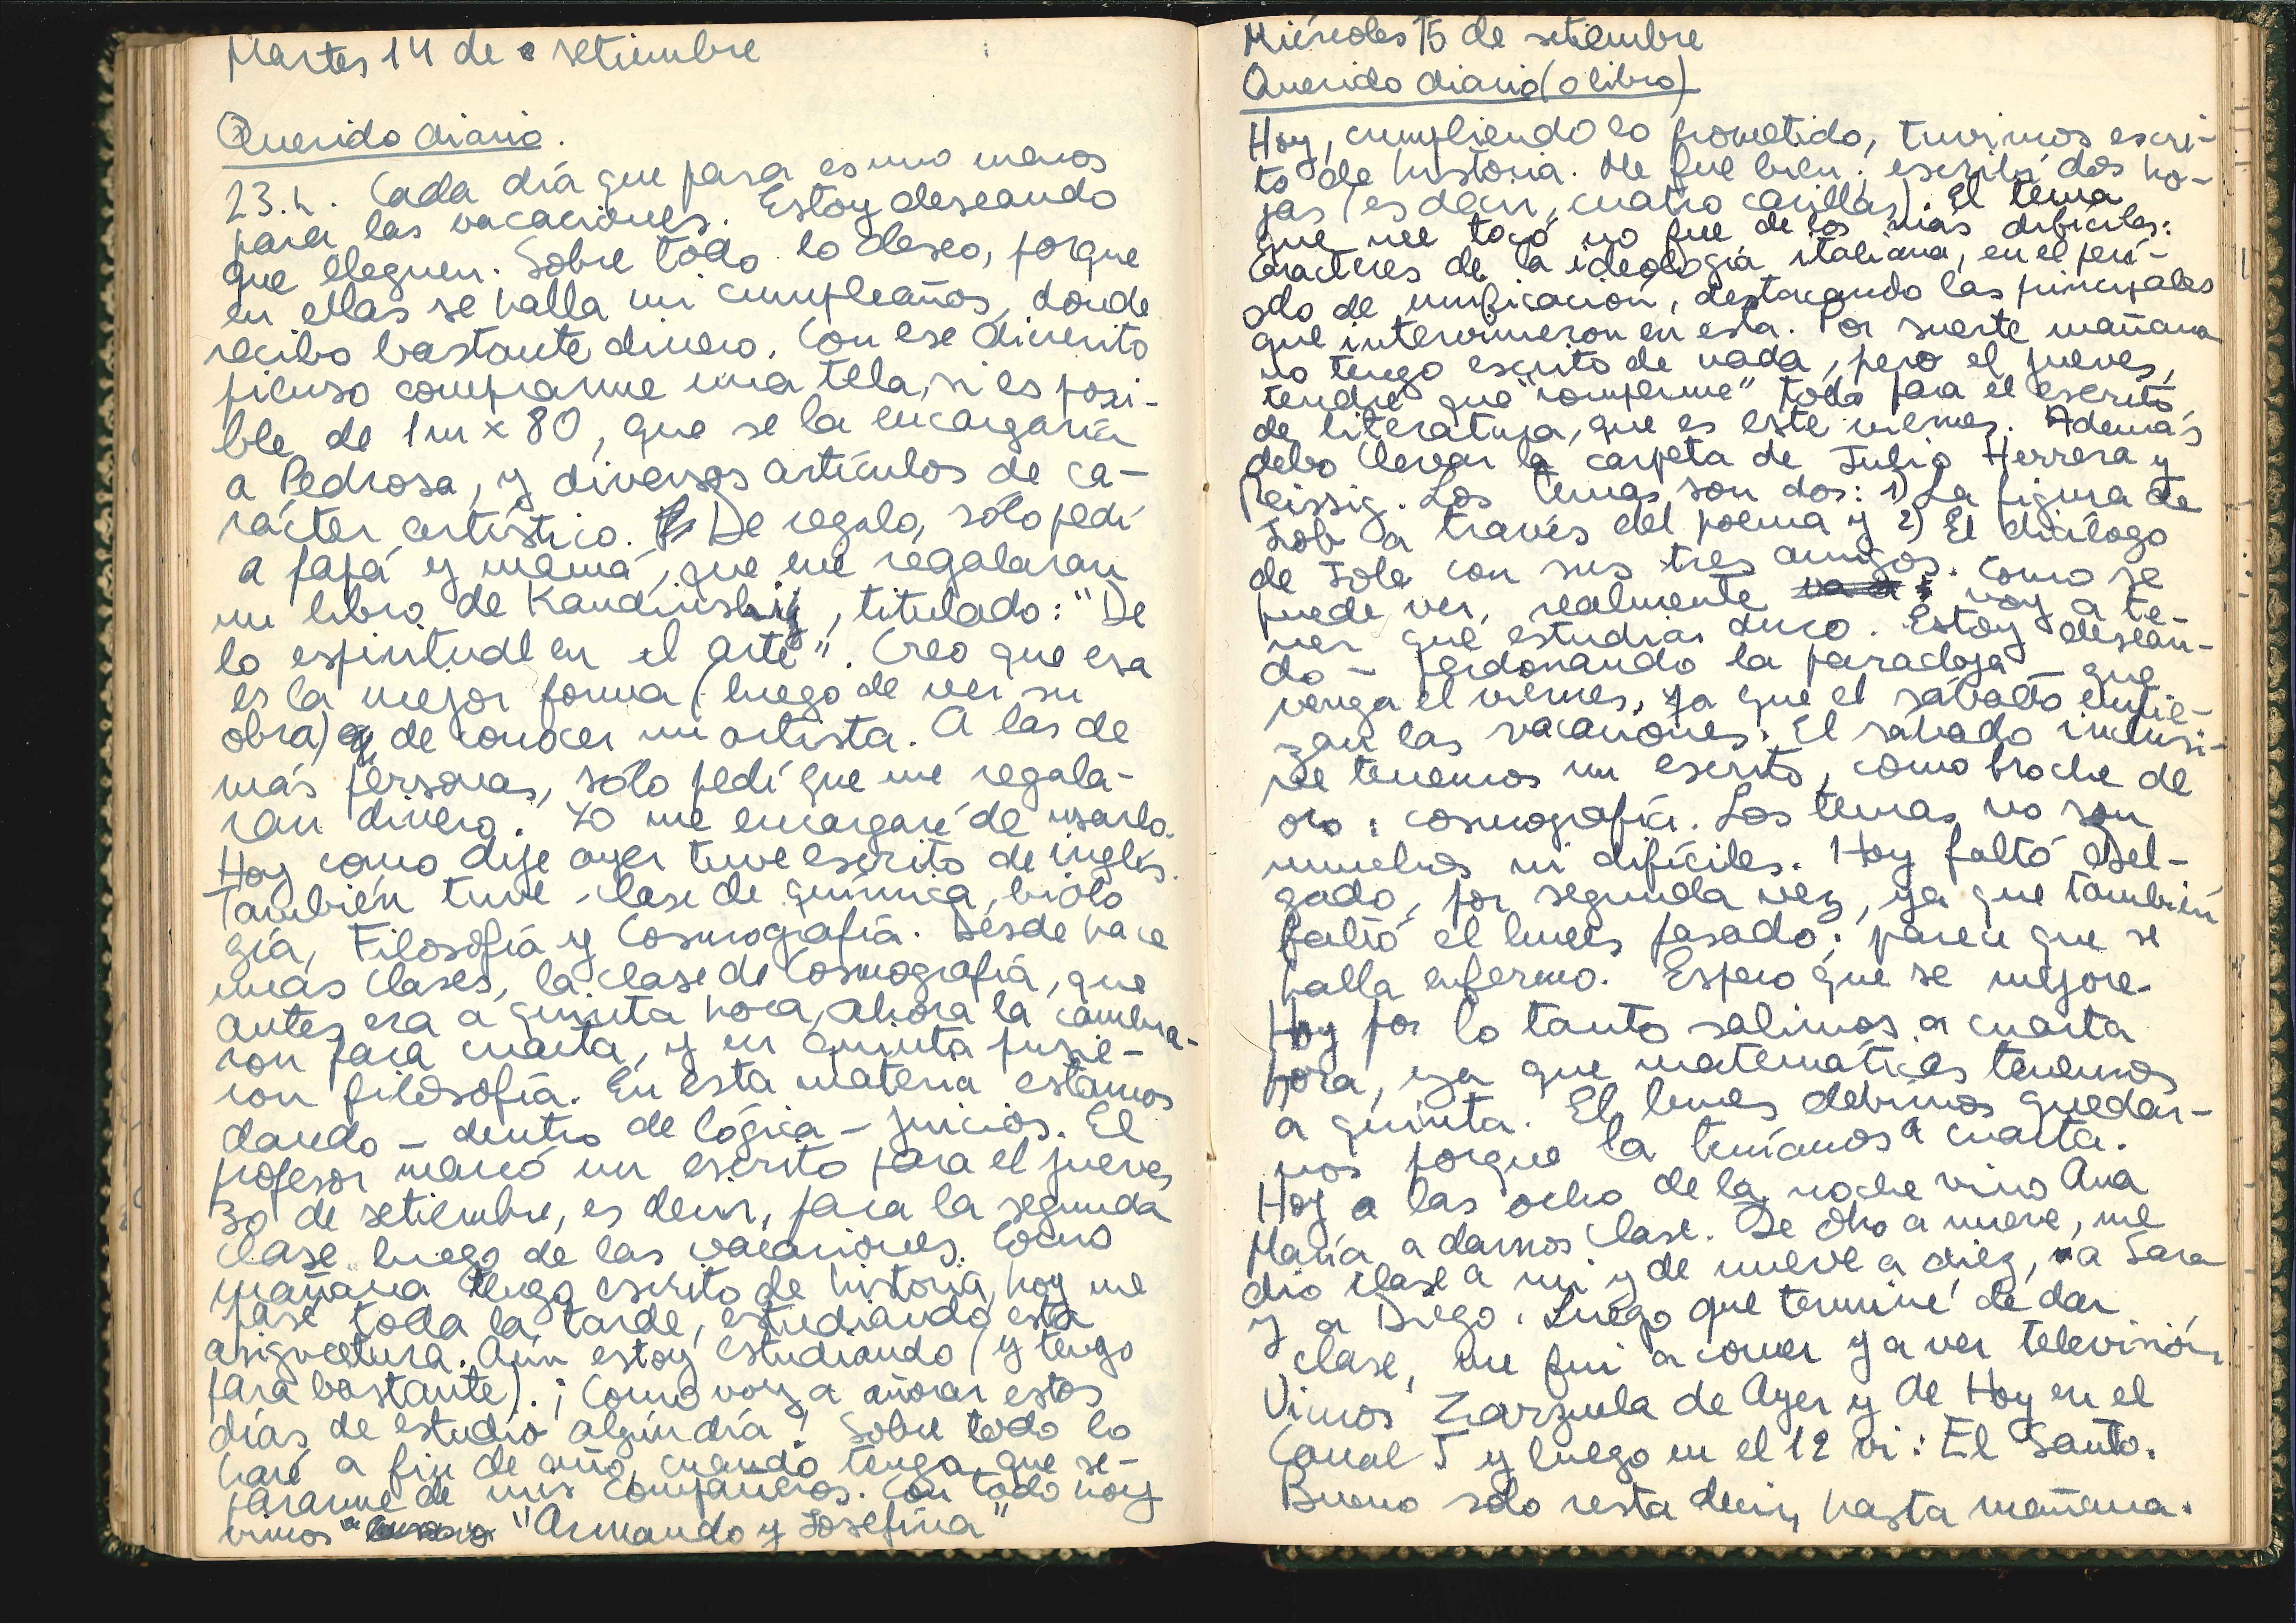 Martes 14 de setiembre
Querido diario.
23.h. Cada día que pasa es uno menos
para las vacaciones. Estoy deseando
que lleguen. Sobre todo lo deseo, porque
en ellas se halla mi cumpleaños, donde
recibo bastante dinero. Con ese dinerito
pienso comprarme una tela, si es posi-
ble de 1m x 80, que se la encargaría
a Pedrosa, y diversos artículos de ca-
rácter artístico. De regalo, sólo pedí
a papá y mamá, que me regalaran
un libro de Kandinskiy, titulado: "De
lo espiritual en el arte". Creo que esa
es la mejor forma (luego de ver su
obra) de conocer un artista. A las de
más personas, sólo pedí que me regala-
ran dinero. Yo me encargaré de usarlo.
Hoy como dije ayer tuve escrito de inglés.
También tuve clase de química, biolo
gía, Filosofía y Cosmografía. Desde hace
unas clases, la clase de Cosmografía, que
antes era a quinta hora, ahora la cambia-
ron para cuarta, y en quinta pusie-
ron filosofía. En esta materia estamos
dando - dentro de lógica - juicios. El
profesor marcó un escrito para el jueves
30 de setiembre, es decir, para la segunda
clase luego de las vacaciones. Como
mañana tengo escrito de historia, hoy me
pasé toda la tarde, estudiando esta
asignatura. Aún estoy estudiando (y tengo
para bastante). ¡Como voy a añorar estos
días de estudio algún día! Sobre todo lo
haré a fin de año, cuando tenga que se-
pararme de mis compañeros. Con todo hoy
vimos "Armando y Josefina"
Miércoles 15 de setiembre
Querido diario (o libro)
Hoy, cumpliendo lo prometido, tuvimos escri-
to de historia. Me fue bien; escribí dos ho-
jas (es decir, cuatro carillas). El tema
que me tocó no fue de los más difíciles:
Caracteres de la ideología italiana, en el perí-
odo de unificación, destacando las principales
que intervinieron en esta. Por suerte mañana
no tengo escrito de nada, pero el jueves,
tendré que "romperme" toda para el escrito,
de literatura, que es este viernes. Además
debo llevar la carpeta de Julio Herrera y
Reissig. Los temas son dos: 1) La figura de
Job a través del poema y 2) El diálogo
de Job con sus tres amigos. Como se
puede ver, realmente voy a te-
ner que estudiar duro. Estoy desean-
do - perdonando la paradoja - que
venga el viernes, ya que el sábado empie-
zan las vacaciones. El sábado inclusi-
ve tenemos un escrito, como broche de
oro: cosmografía. Los temas no son
muchos ni difíciles. Hoy faltó Del-
gado, por segunda vez, ya que también
faltó el lunes pasado; parece que se
halla enfermo. Espero que se mejore.
Hoy por lo tanto salimos a cuarta
hora, ya que matemáticas tenemos
a quinta. El lunes debimos quedar-
nos porque la teníamos a cuarta.
Hoy a las ocho de la noche vino Ana
María a darnos clase. De ocho a nueve, me
dio clase a mi y de nueve a diez, a Sara
y a Diego. Luego que terminé de dar
clase, me fui a comer y a ver televisión
Vimos Zarzuela de Ayer y de Hoy en el
Canal 5 y luego en el 12 vi: El Santo.
Bueno solo resta decir, hasta mañana.